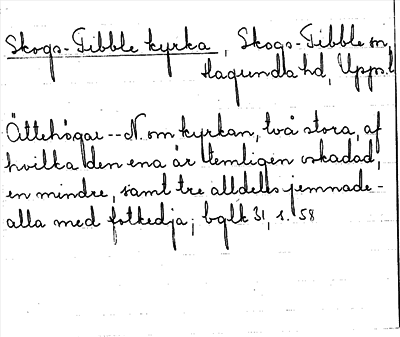 Skogs-Tibble kyrka, Skogs-Tibble sn,
Hagunda hd, Uppl.
Ättehögar -- N. om kyrkan, två stora, af
hvilka den ena är temligen oskadad,
en mindre, samt tre alldeles jemnade -
alla med fotkedja; bglk 31, s. 58